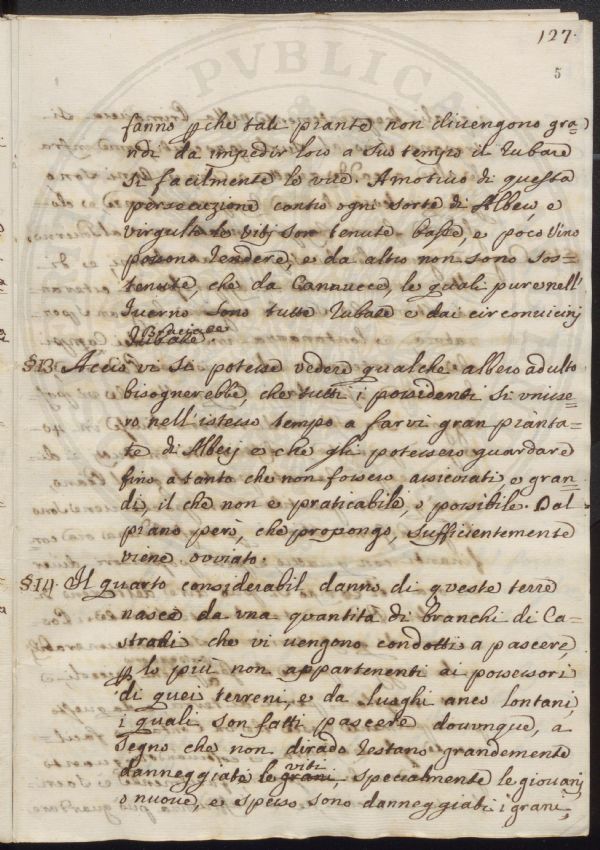 127.
5
fanno p che tali piante non divengono gra=
ndi da impedir loro a suo tempo il rubare
si facilmente le vite. A motivo di questa
persecuzione contro ogni sorte di Alberi, e
virgulto le viti son tenute basse, e poco vino
possono rendere, e da altro non sono sos=
tenute, che da Cannucce, le quali pure nell'
Inverno sono tutte rubate e dai circonvicinj
Bruciate
rubate.
§13. Acciò vi si potesse vedere qualche albero adulto
bisognerebbe, che tutti i possidenti si unisse=
ro nell'istesso tempo a farvi gran pianta=
te di Alberj e che gli potessero guardare
fino a tanto che non fossero assicurati, e gran=
di, il che non è praticabile, e possibile. Dal
piano però, che propongo, sufficientemente
viene ovviato.
§14. Il quarto considerabil danno di queste terre
nasce da una quantità di branchi di Ca=
strati che vi vengono condotti a pascere,
p lo più non appartenenti ai possessori
di quei terreni, e da luoghi anco lontani,
i quali son fatti pascere dovunque, a
segno che non dirado restano grandemente
viti
danneggiate le grani, specialmente le giovanj
o nuove, e spesso sono danneggiati i grani,